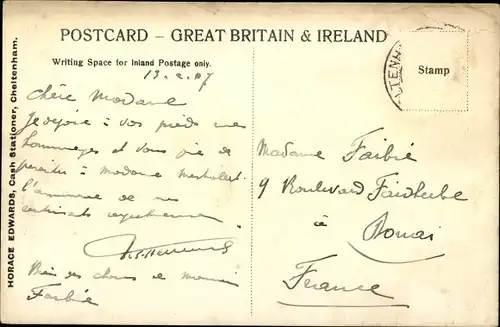 POSTCARD – GREAT BRITAIN & IRELAND
Writing Space for Inland Postage only.
Stamp
HORACE EDWARDS, Cash Stationer, Cheltenham.
13.2.07
Chère Madame
Je dépose à vos pieds mes
hommages et vous prie de
à Madame
l'assurance de mes
sentiments
Bien des choses à monsieur
Farbié
Madame Farbié
9 Boulevard Faidherbe
à
Douai
France